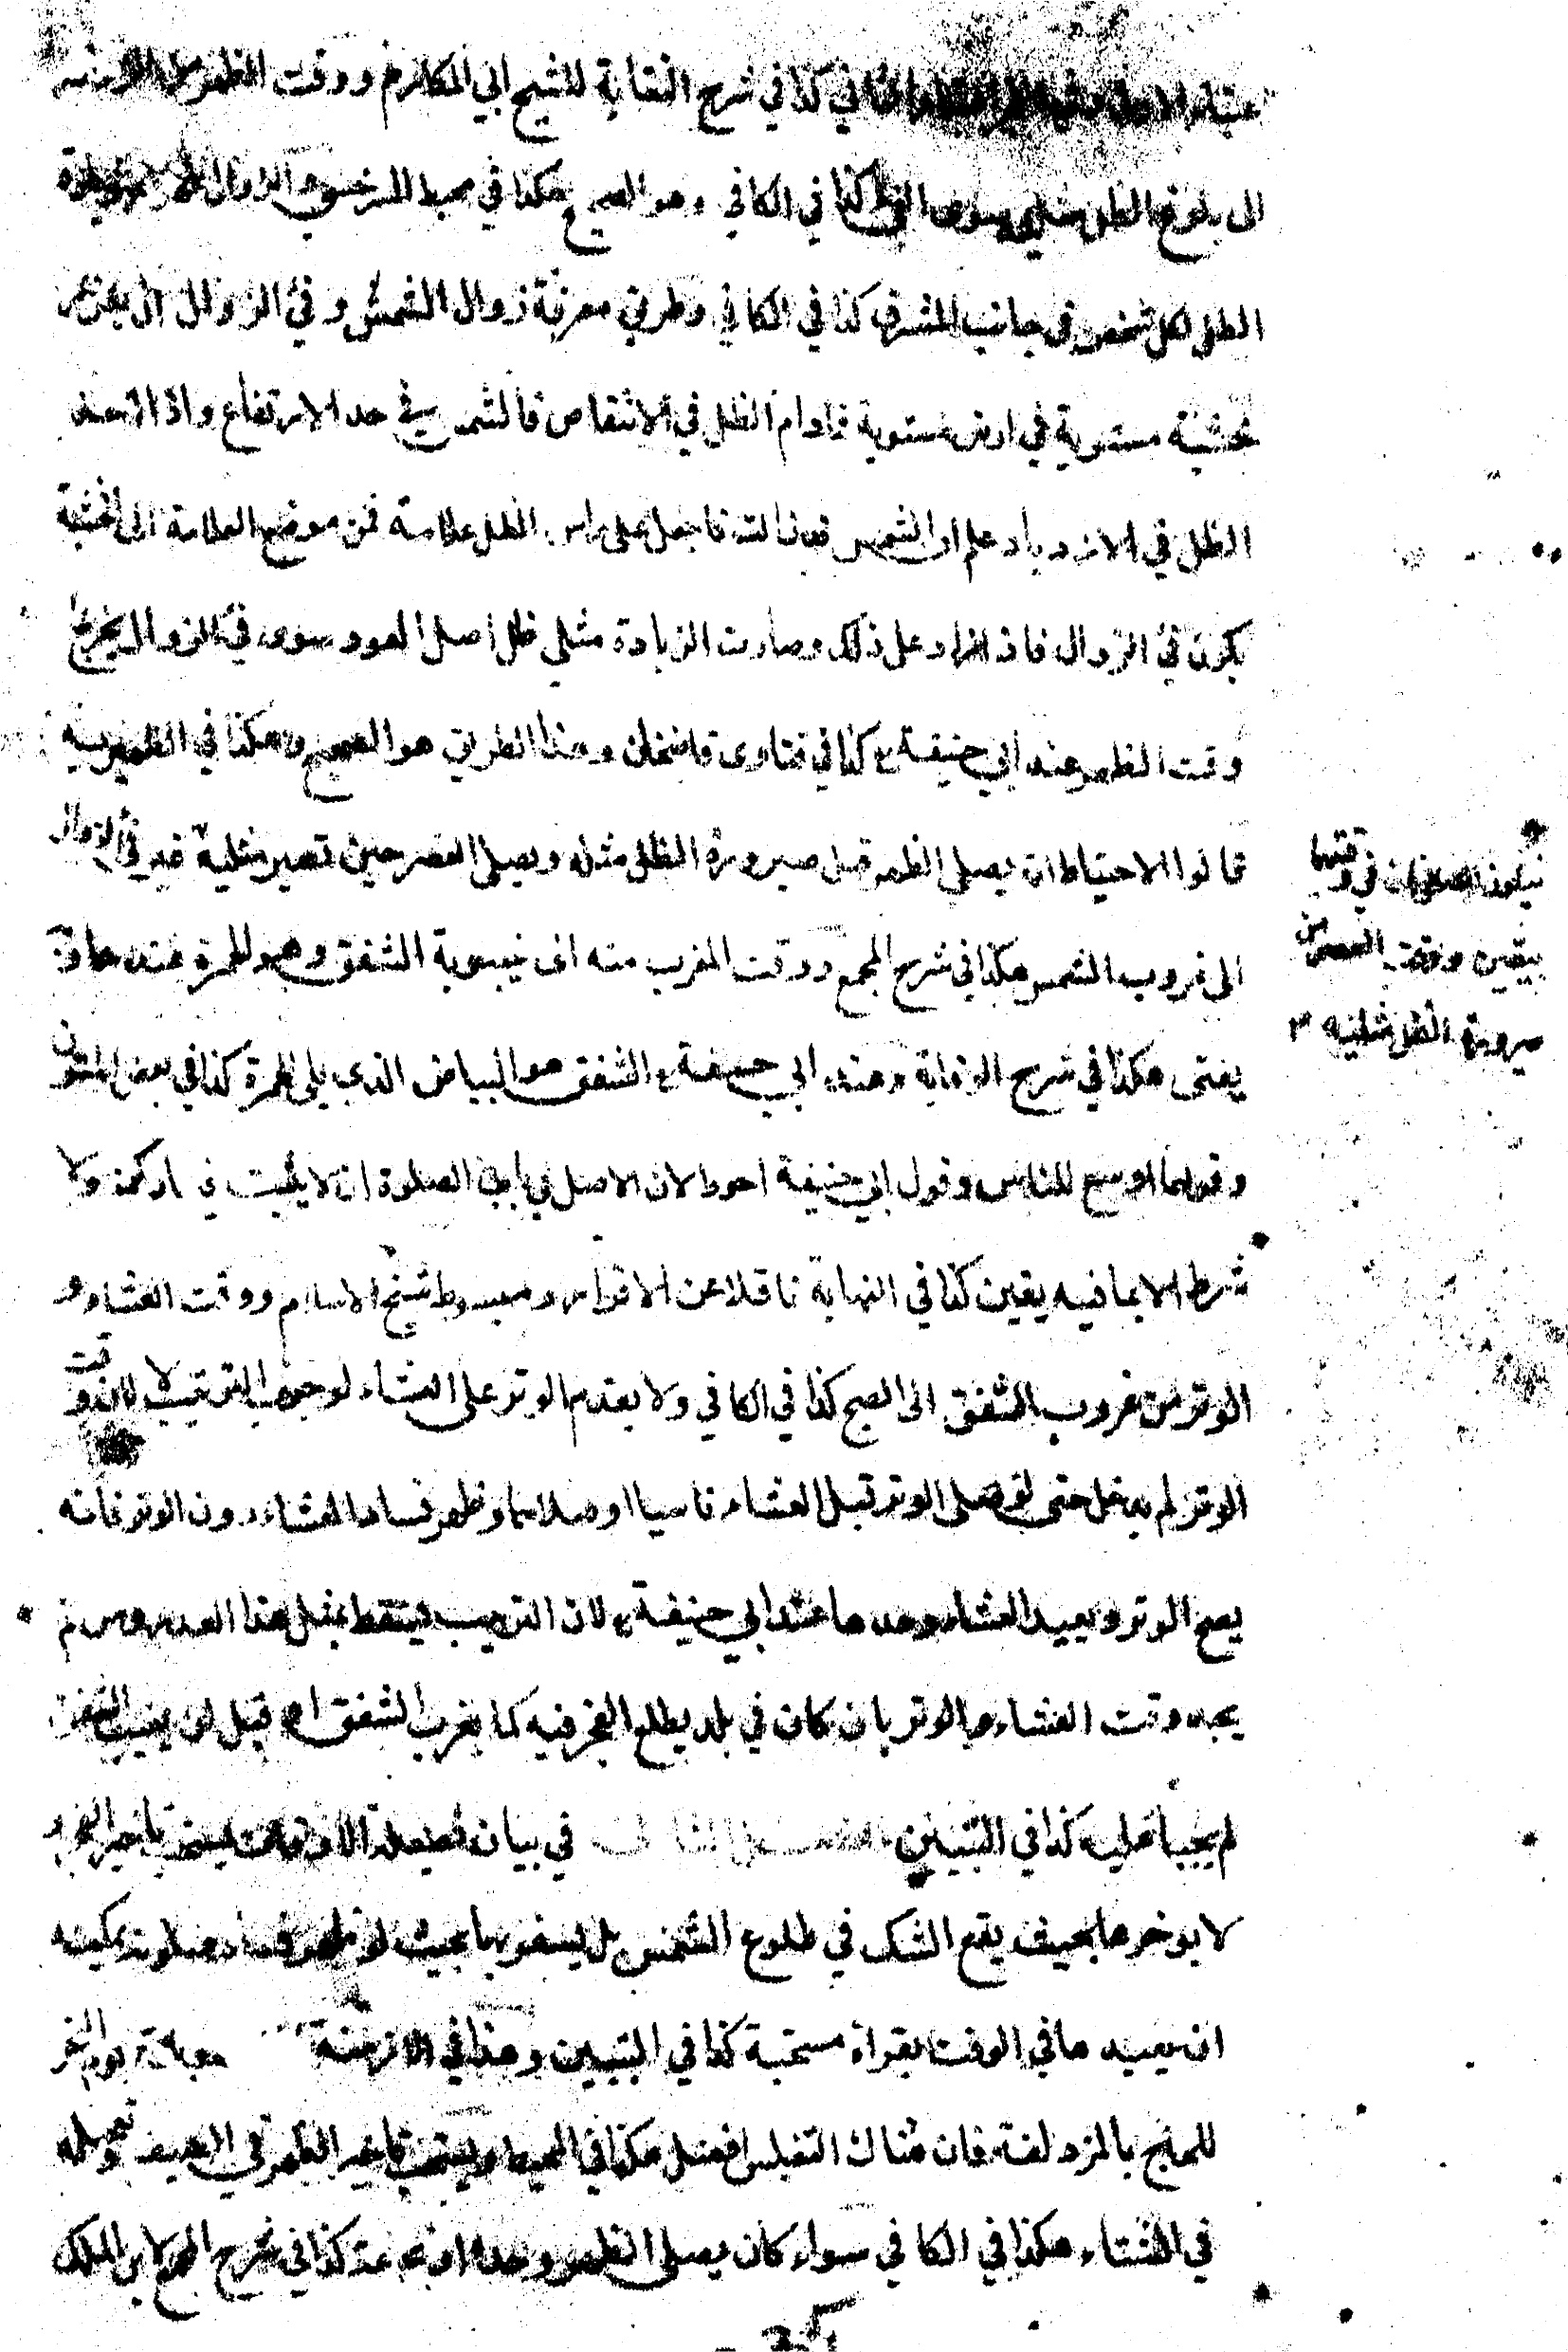 الثاني كذا في شرح النقاية للشيخ ابي المكارم ووقت الظهر من الزوال
الى بلوغ الظل مثليه سوى الفئ كذا في الكافي وهو الصحيح هكذا في محيط السرخسي والزوال ظهور زيادة
الظل لكل شخص في جانب المشرق كذا في الكافي وطريق معرفة زوال الشمس وفئ الزوال ان يغرز
خشبة مستوية في ارض مستوية فما دام الظل في الانتقاص فالشمس في حد الارتفاع واذا اخذ
الظل في الازدياد علم ان الشمس قد زالت فاجعل على راس الظل علامة فمن موضع العلامة الى الخشبة
يكون فئ الزوال فاذا ازداد على ذلك وصارت الزيادة مثلي ظل اصل العود سوى فئ الزوال يخرج
وقت الظهر عند ابي حنيفة رح كذا في فتاوى قاضيخان وهذا الطريق هو الصحيح هكذا في الظهيرية
قالوا الاحتياط ان يصلي الظهر قبل صيرورة الظل مثله ويصلي العصر حين تصير مثليه غير فئ الزوال
الى غروب الشمس هكذا في شرح المجمع ووقت المغرب منه الى غيبوبة الشفق وهو الحمرة عندهما وبه
يفتى هكذا في شرح الوقاية وعند ابي حنيفة رح الشفق هو البياض الذي يلي الحمرة كذا في بعض المتون
وقولهما اوسع للناس وقول ابي حنيفة احوط لان الاصل في باب الصلوة ان لا يثبت فيها ركن ولا
شرط الا بما فيه يقين كذا في النهاية ناقلا عن الاسرار ومبسوط شيخ الاسلام ووقت العشاء و
الوتر من غروب الشفق الى الصبح كذا في الكافي ولا يقدم الوتر على العشاء لوجوب الترتيب لا لان وقت
الوتر لم يدخل حتى لو صلى الوتر قبل العشاء ناسيا او صلاهما وظهر فساد العشاء دون الوتر فانه
يصح الوتر ويعيد العشاء وحدها عند ابي حنيفة رح لان الترتيب يسقط بمثل هذا العذر ومن لم
يجد وقت العشاء والوتر بان كان في بلد يطلع الفجر فيه كما يغرب الشفق او قبل ان يغيب الشفق
لم يجبا عليه كذا في التبيين في بيان فضيلة الاوقات يستحب تاخير الفجر و
لا يوخرها بحيث يقع الشك في طلوع الشمس بل يسفر بها بحيث لو ظهر فساد صلوته يمكنه
ان يعيدها في الوقت بقراءة مستحبة كذا في التبيين وهذا في الازمنة يوم النحر
للحاج بالمزدلفة فان هناك التغليس افضل هكذا في المحيط ويستحب تاخير الظهر في الصيف وتعجيله
في الشتاء هكذا في الكافي سواء كان يصلي الظهر وحده او بجماعة كذا في شرح المجمع لابن الملك
فيكون الصلوتان في وقتهما
بيقين ووقت العصر من
صيرورة الظل مثليه